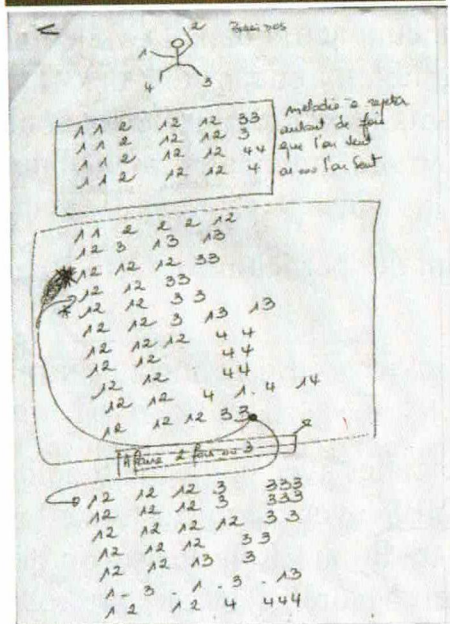 1 2
4 3
1 1 2 12 12 33
1 1 2 12 12 3
1 1 2 12 12 44
1 1 2 12 12 4
melodie a repeter
autant de fois
que l'on veut
1 1 2 2 2 12
12 3 13 13
12 12 12 33
12 12 33
12 12 33
12 12 3 13 13
12 12 12 44
12 12 44
12 12 44
12 12 4 1.4 14
12 12 12 33
A faire 2 fois ou 3
12 12 12 3 333
12 12 12 3 333
12 12 12 12 33
12 12 12 33
12 12 13 3
1 - 3 - 1 - 3 - 13
12 12 4 444